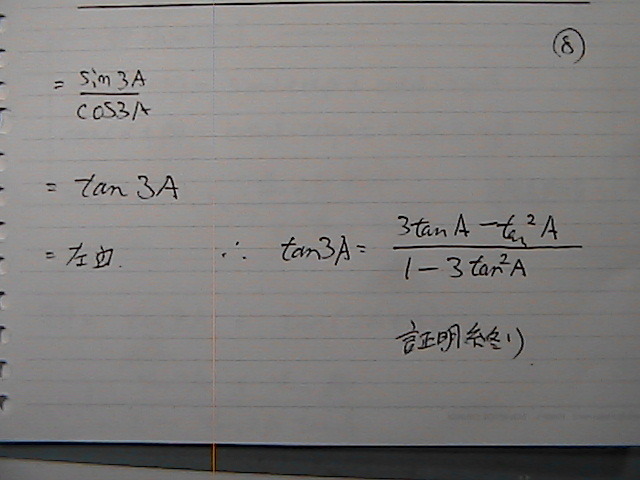 ⑧
= sin3A / cos3A
= tan 3A
= 左辺. ∴ tan3A = (3tanA - tan²A) / (1 - 3tan²A)
証明終り)